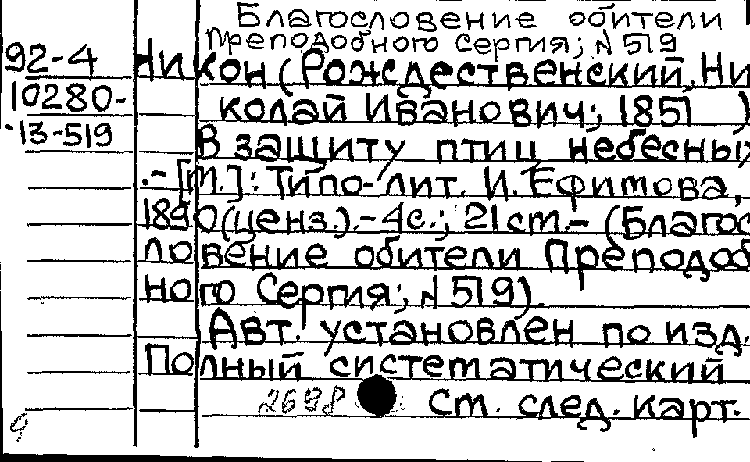 Благословение обители
Преподобного Сергия; N 519
92-4 Никон (Рождественский, Ни
10280- колай Иванович; 1851 )
13-519 В защиту птиц небесны
.-[М.]: Типо-лит. И. Ефимова,
1890(ценз.).-4с.; 21см.- (Благос
ловение обители Преподоб
ного Сергия; N 519).
Авт. установлен по изд.
Полный систематический
2698 Ст. след. карт.
9